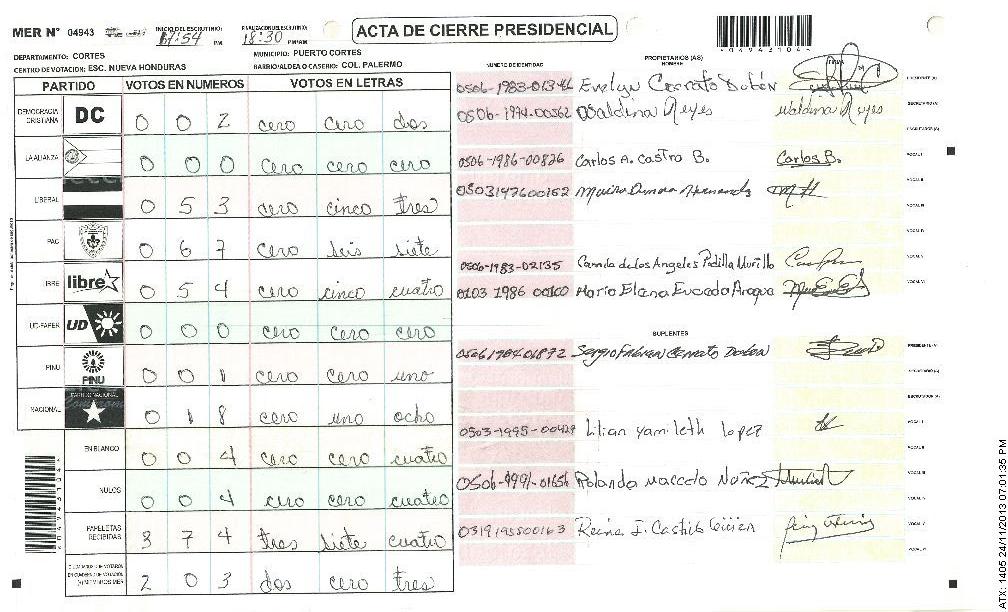 MER N° 04943
INICIO DEL ESCRUTINIO: 17:54 PM
FINALIZACION DEL ESCRUTINIO: 18:30 PM/AM
ACTA DE CIERRE PRESIDENCIAL
DEPARTAMENTO: CORTES
MUNICIPIO: PUERTO CORTES
CENTRO DE VOTACION: ESC. NUEVA HONDURAS
BARRIO/ALDEA O CASERIO: COL. PALERMO
PARTIDO VOTOS EN NUMEROS VOTOS EN LETRAS
DEMOCRACIA CRISTIANA DC 0 0 2 cero cero dos
LA ALIANZA 0 0 0 cero cero cero
LIBERAL 0 5 3 cero cinco tres
PAC 0 6 7 cero seis siete
LIBRE libre 0 5 4 cero cinco cuatro
UD-FAPER UD 0 0 0 cero cero cero
PINU PINU 0 0 1 cero cero uno
NACIONAL PARTIDO NACIONAL 0 1 8 cero uno ocho
EN BLANCO 0 0 4 cero cero cuatro
NULOS 0 0 4 cero cero cuatro
PAPELETAS RECIBIDAS 3 7 4 tres siete cuatro
2 0 3 dos cero tres
NUMERO DE IDENTIDAD
PROPIETARIOS (AS)
NOMBRE
FIRMA
0506-1983-01346 Evelyn Cerrato Dubón PRESIDENTE (A)
0506-1994-00562 Waldina Reyes Waldina Reyes SECRETARIO (A)
ESCRUTADOR (A)
0506-1986-00826 Carlos A. Castro B. Carlos B. VOCAL I
0503197600152 VOCAL II
VOCAL III
VOCAL IV
0506-1983-02135 Camila de los Angeles Padilla Murillo VOCAL V
0103 1986 00100 Maria Elena VOCAL VI
SUPLENTES
0506198401872 Sergio Fabian Cerrato Dubon PRESIDENTE (A)
SECRETARIO (A)
ESCRUTADOR (A)
0503-1995-00429 Lilian yamileth lopez VOCAL I
VOCAL II
Rolando Macedo Nuñez VOCAL III
VOCAL IV
0319195500163 Reina I. Castillo VOCAL V
VOCAL VI
ATX: 1405 24/11/2013 07:01:35 PM